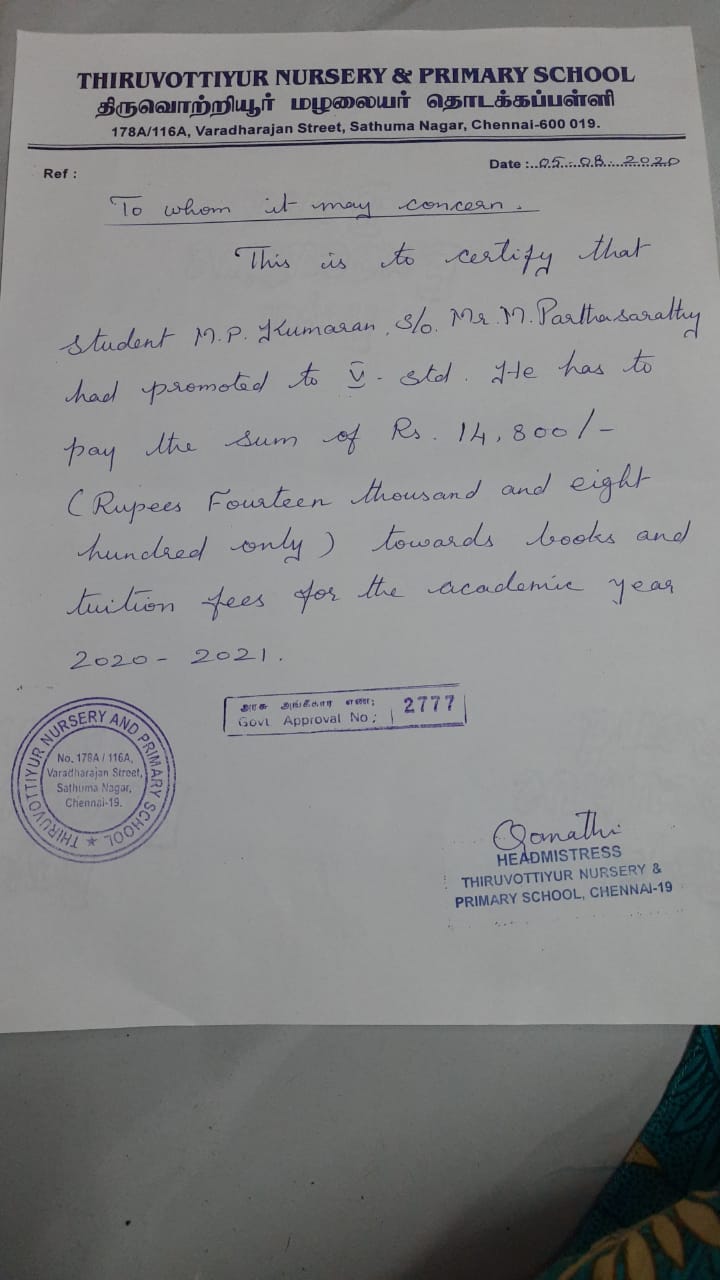 THIRUVOTTIYUR NURSERY & PRIMARY SCHOOL
திருவொற்றியூர் மழலையர் தொடக்கப்பள்ளி
178A/116A, Varadharajan Street, Sathuma Nagar, Chennai-600 019.
Ref :
Date : 05.08.2020
To whom it may concern.
This is to certify that
student M.P. Kumaran, S/o. Mr. M. Parthasarathy
had promoted to V - std. He has to
pay the sum of Rs. 14,800/-
(Rupees Fourteen thousand and eight
hundred only) towards books and
tuition fees for the academic year
2020 - 2021.
அரசு அங்கீகார எண்:
Govt Approval No : 2777
THIRUVOTTIYUR NURSERY AND PRIMARY SCHOOL ★
No. 178A / 116A,
Varadharajan Street,
Sathuma Nagar,
Chennai-19.
HEADMISTRESS
THIRUVOTTIYUR NURSERY &
PRIMARY SCHOOL, CHENNAI-19